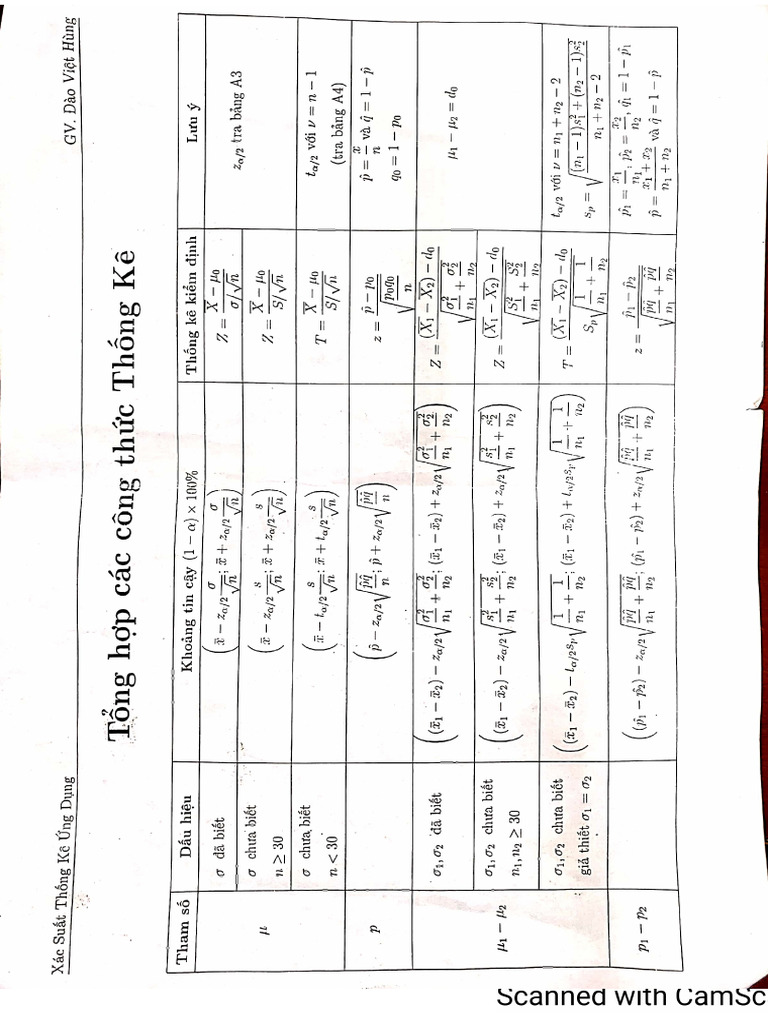 Xác Suất Thống Kê Ứng Dụng GV. Dào Việt Hùng
Tổng hợp các công thức Thống Kê
Tham số | Dấu hiệu | Khoảng tin cậy (1 − α) × 100% | Thống kê kiểm định | Lưu ý
μ | σ đã biết | (x̄ − z_{α/2} σ/√n; x̄ + z_{α/2} σ/√n) | Z = (X̄ − μ₀)/(σ/√n) | z_{α/2} tra bảng A3
σ chưa biết n ≥ 30 | (x̄ − z_{α/2} s/√n; x̄ + z_{α/2} s/√n) | Z = (X̄ − μ₀)/(S/√n)
σ chưa biết n < 30 | (x̄ − t_{α/2} s/√n; x̄ + t_{α/2} s/√n) | T = (X̄ − μ₀)/(S/√n) | t_{α/2} với ν = n − 1 (tra bảng A4)
p | (p̂ − z_{α/2} √(p̂q̂/n); p̂ + z_{α/2} √(p̂q̂/n)) | z = (p̂ − p₀)/√(p₀q₀/n) | p̂ = x/n và q̂ = 1 − p̂ q₀ = 1 − p₀
μ₁ − μ₂ | σ₁, σ₂ đã biết | ((x̄₁ − x̄₂) − z_{α/2} √(σ₁²/n₁ + σ₂²/n₂); (x̄₁ − x̄₂) + z_{α/2} √(σ₁²/n₁ + σ₂²/n₂)) | Z = ((X̄₁ − X̄₂) − d₀)/√(σ₁²/n₁ + σ₂²/n₂) | μ₁ − μ₂ = d₀
σ₁, σ₂ chưa biết n₁, n₂ ≥ 30 | ((x̄₁ − x̄₂) − z_{α/2} √(s₁²/n₁ + s₂²/n₂); (x̄₁ − x̄₂) + z_{α/2} √(s₁²/n₁ + s₂²/n₂)) | Z = ((X̄₁ − X̄₂) − d₀)/√(S₁²/n₁ + S₂²/n₂)
σ₁, σ₂ chưa biết giả thiết σ₁ = σ₂ | ((x̄₁ − x̄₂) − t_{α/2} s_p √(1/n₁ + 1/n₂); (x̄₁ − x̄₂) + t_{α/2} s_p √(1/n₁ + 1/n₂)) | T = ((X̄₁ − X̄₂) − d₀)/(S_p √(1/n₁ + 1/n₂)) | t_{α/2} với ν = n₁ + n₂ − 2 s_p = √(((n₁ − 1)s₁² + (n₂ − 1)s₂²)/(n₁ + n₂ − 2))
p₁ − p₂ | ((p̂₁ − p̂₂) − z_{α/2} √(p̂q̂/n₁ + p̂q̂/n₂); (p̂₁ − p̂₂) + z_{α/2} √(p̂q̂/n₁ + p̂q̂/n₂)) | z = (p̂₁ − p̂₂)/√(p̂q̂/n₁ + p̂q̂/n₂) | p̂₁ = x₁/n₁; p̂₂ = x₂/n₂, q̂₁ = 1 − p̂₁ p̂ = (x₁ + x₂)/(n₁ + n₂) và q̂ = 1 − p̂
Scanned with CamSc